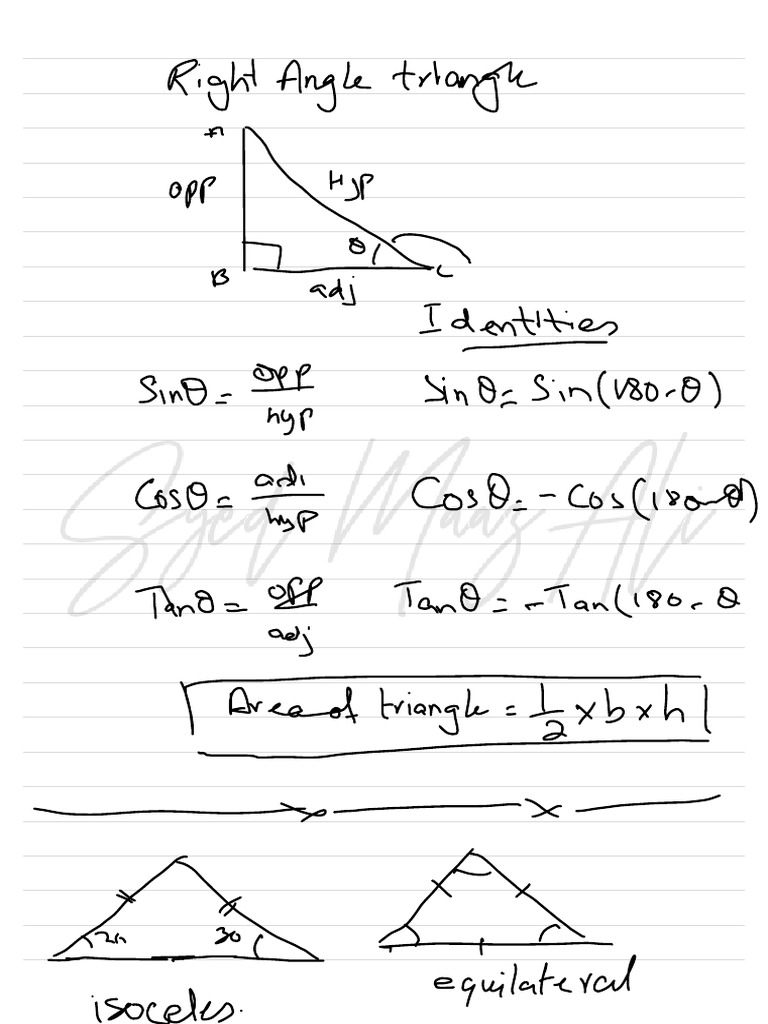 Right Angle triangle
A
opp
Hyp
θ
B
C
adj
Identities
Sinθ = opp/hyp
Sinθ = Sin(180-θ)
Cosθ = adj/hyp
Cosθ = -Cos(180-θ)
Tanθ = opp/adj
Tanθ = -Tan(180-θ
Syed Maaz Ali
Area of triangle = 1/2 × b × h
30
isoceles.
equilateral